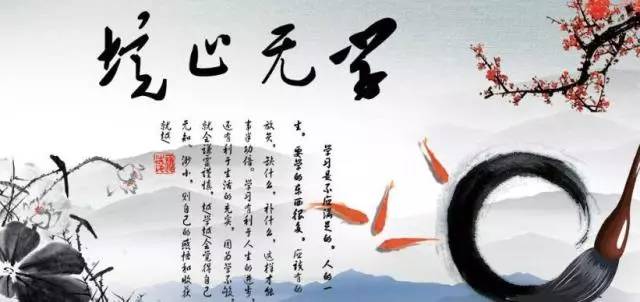 学无止境
学习是不应满足的，人的一
生，要学的东西很多，应该有的
放矢，缺什么，补什么，这样才能
事半功倍。学习有利于人生的进步，
还有利于生活的充实，因为学不够，
就会谦虚谨慎，越学越会觉得自己
无知、渺小，则自己的感悟和收获
就越